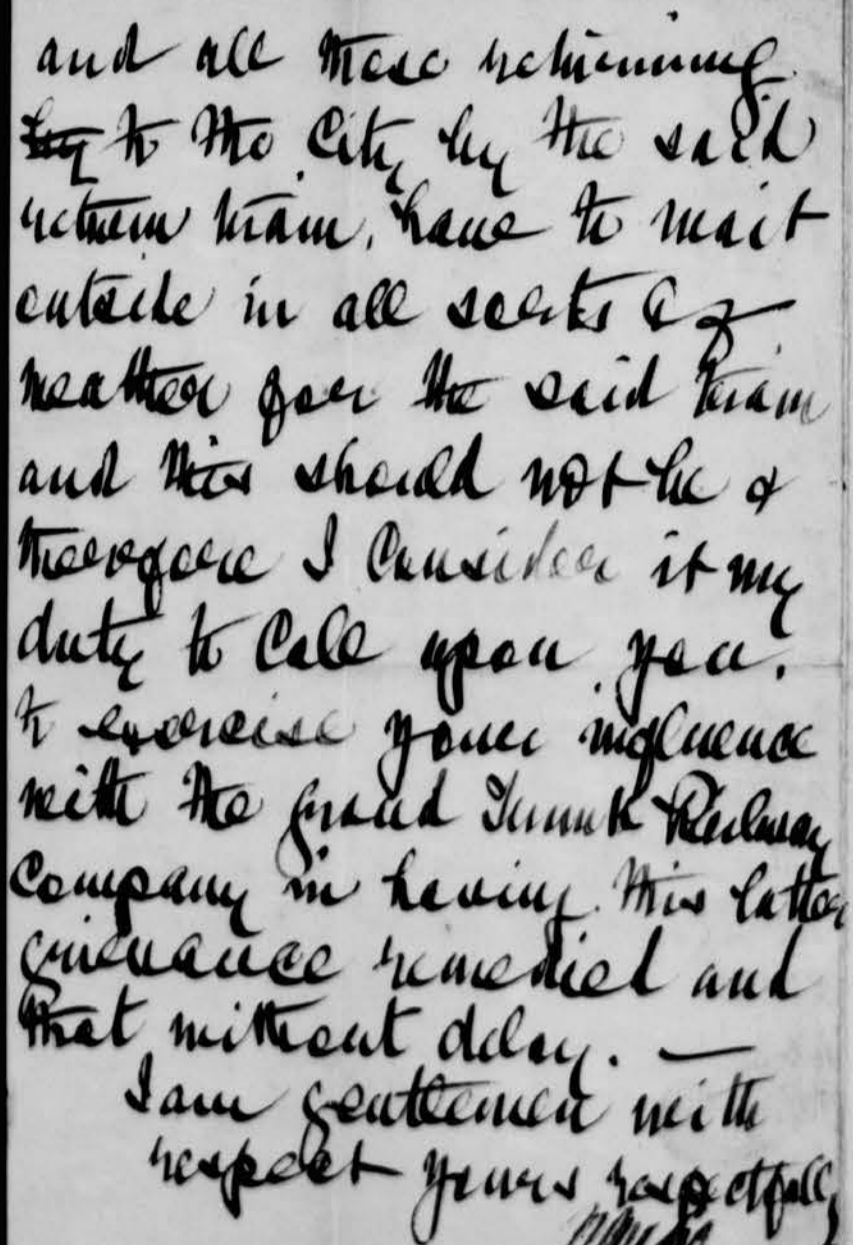 and all those returning
by to the City by the said
return train, have to wait
outside in all sorts of
weather for the said train
and this should not be &
therefore I Consider it my
duty to Call upon you.
to exercise your influence
with the Grand Trunk Railway
Company in having this latter
grievance remedied and
that without delay. —
I am gentlemen with
respect yours respectfully